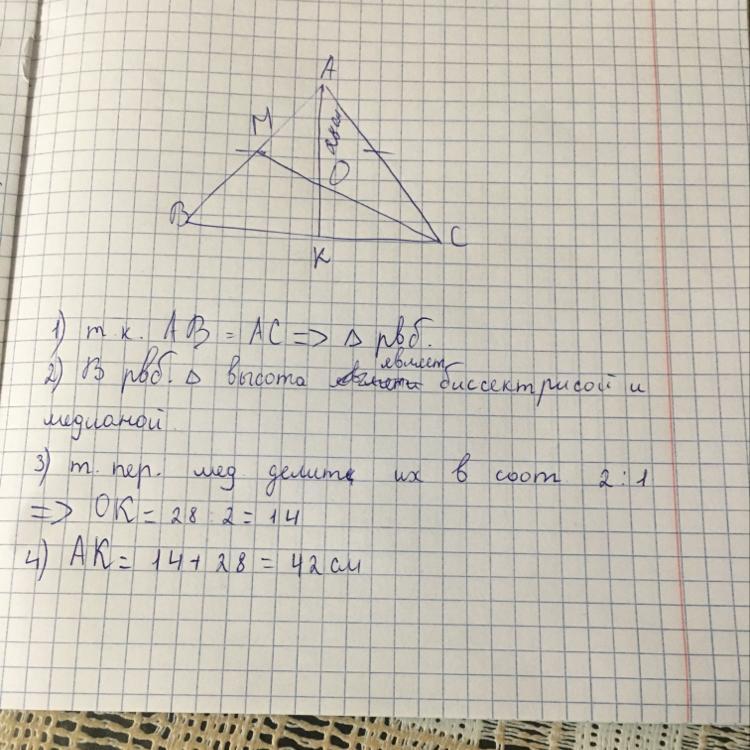 A
M
O
B
C
K
1) т.к. AB = AC => Δ рвб.
2) В рвб. Δ высота являет биссектрисой и
медианой.
3) т. пер. мед делит их в соот 2:1
=> OK = 28 : 2 = 14
4) AK = 14 + 28 = 42 см